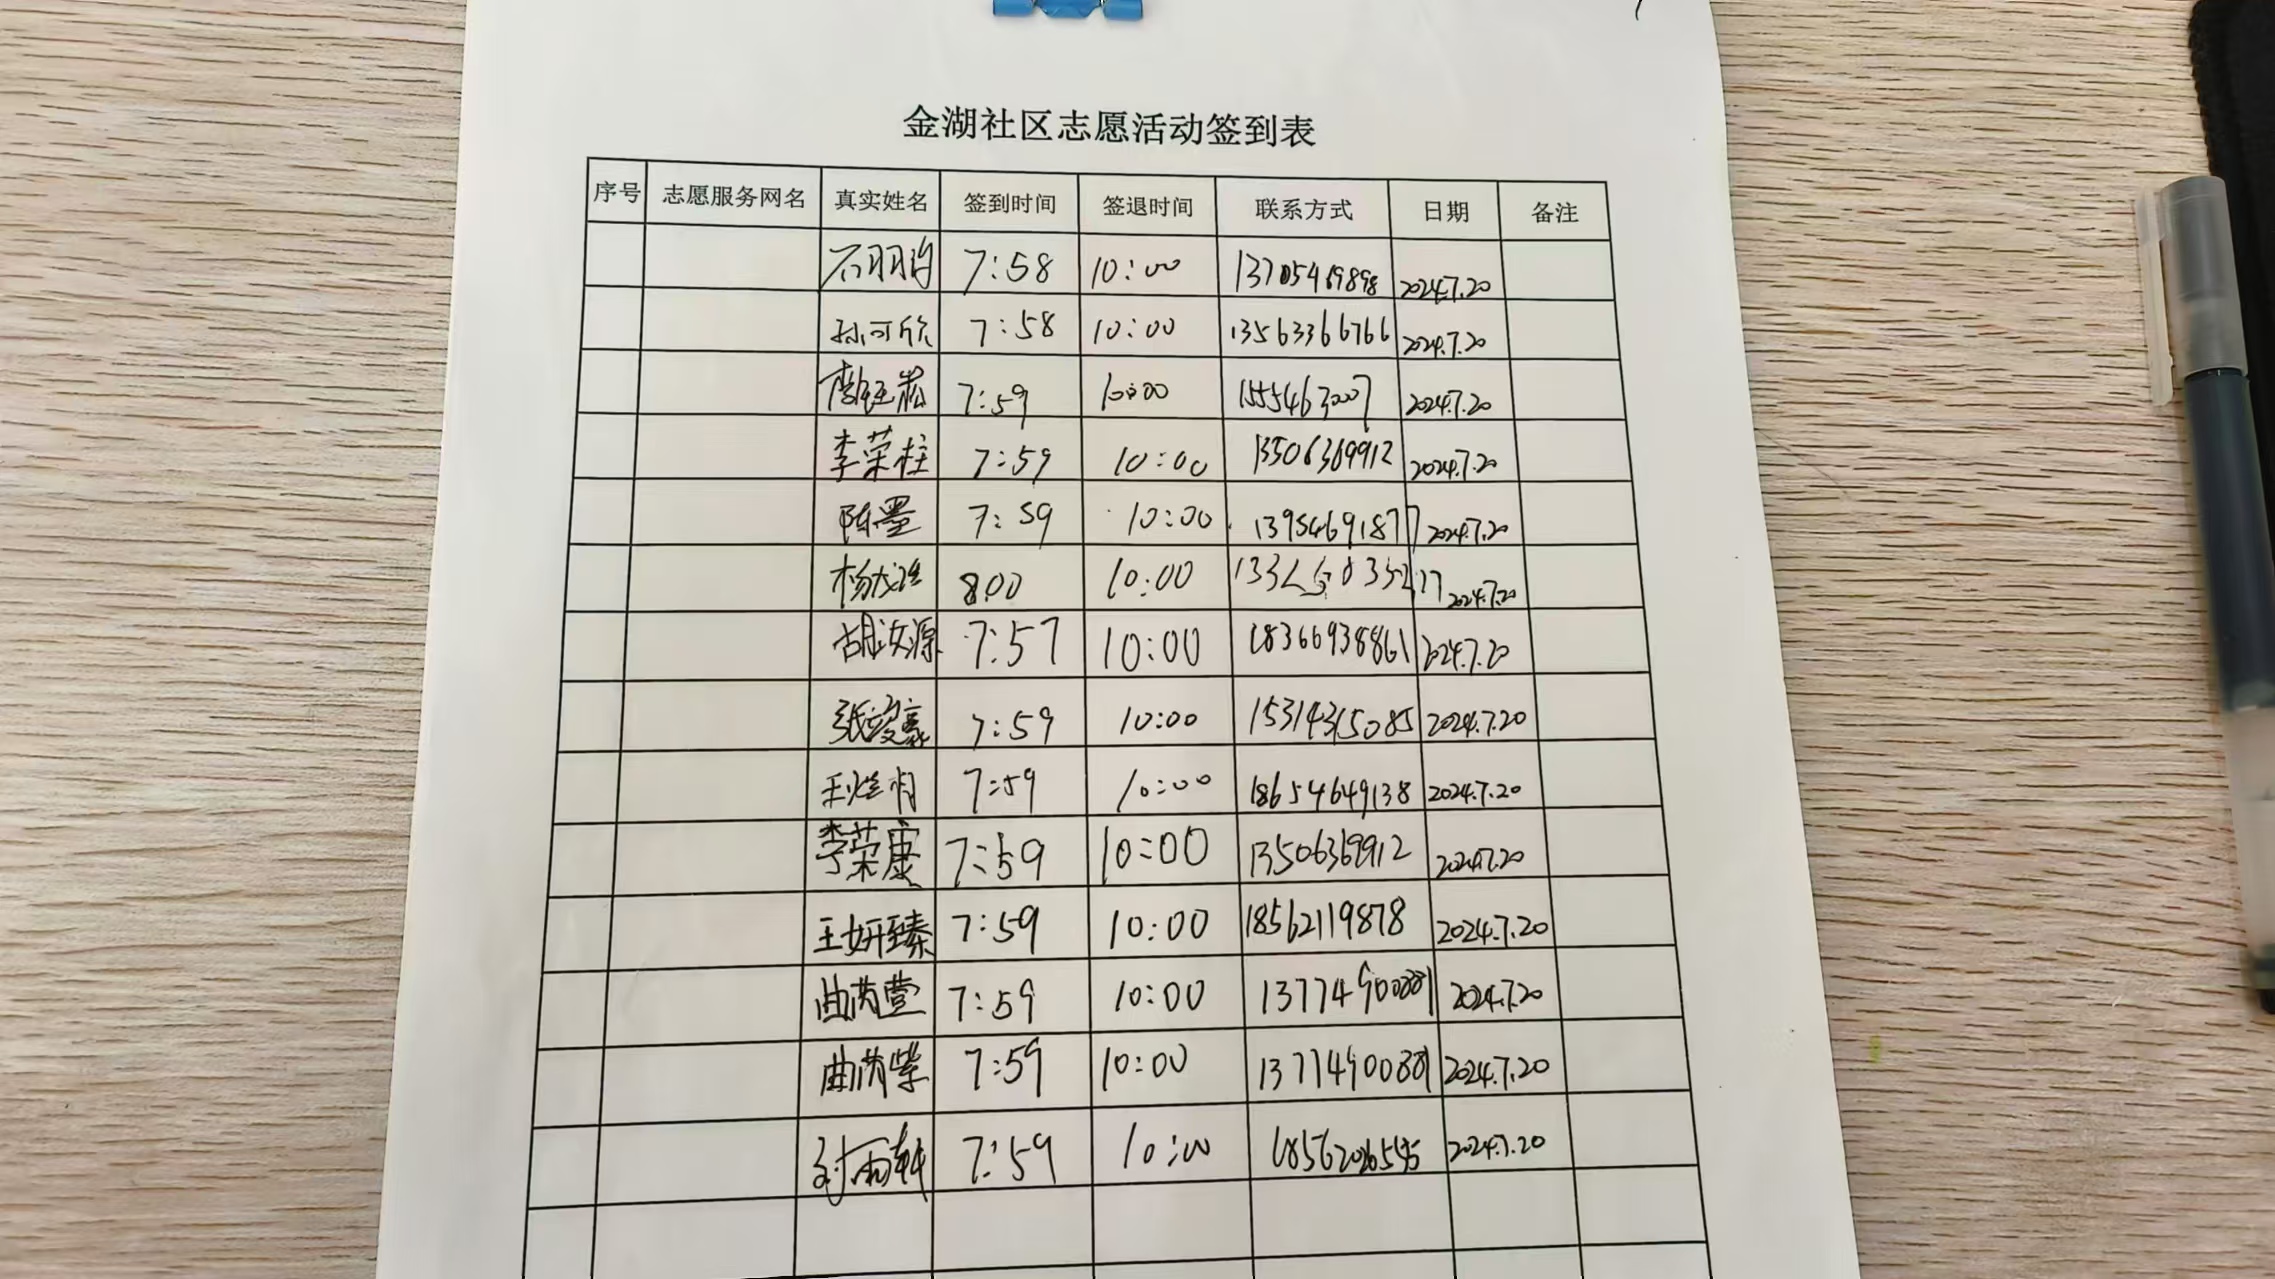 金湖社区志愿活动签到表
序号 志愿服务网名 真实姓名 签到时间 签退时间 联系方式 日期 备注
7:58 10:00 2024.7.20
孙可欣 7:58 10:00 13563366766 2024.7.20
7:59 10:00 2024.7.20
李荣柱 7:59 10:00 13506369912 2024.7.20
陈墨 7:59 10:00 13954691877 2024.7.20
8:00 10:00 2024.7.20
胡汝源 7:57 10:00 18366938861 2024.7.20
7:59 10:00 15314315085 2024.7.20
7:59 10:00 18654649138 2024.7.20
李荣康 7:59 10:00 13506369912 2024.7.20
王妍臻 7:59 10:00 18562119878 2024.7.20
7:59 10:00 2024.7.20
7:59 10:00 2024.7.20
刘雨轩 7:59 10:00 2024.7.20